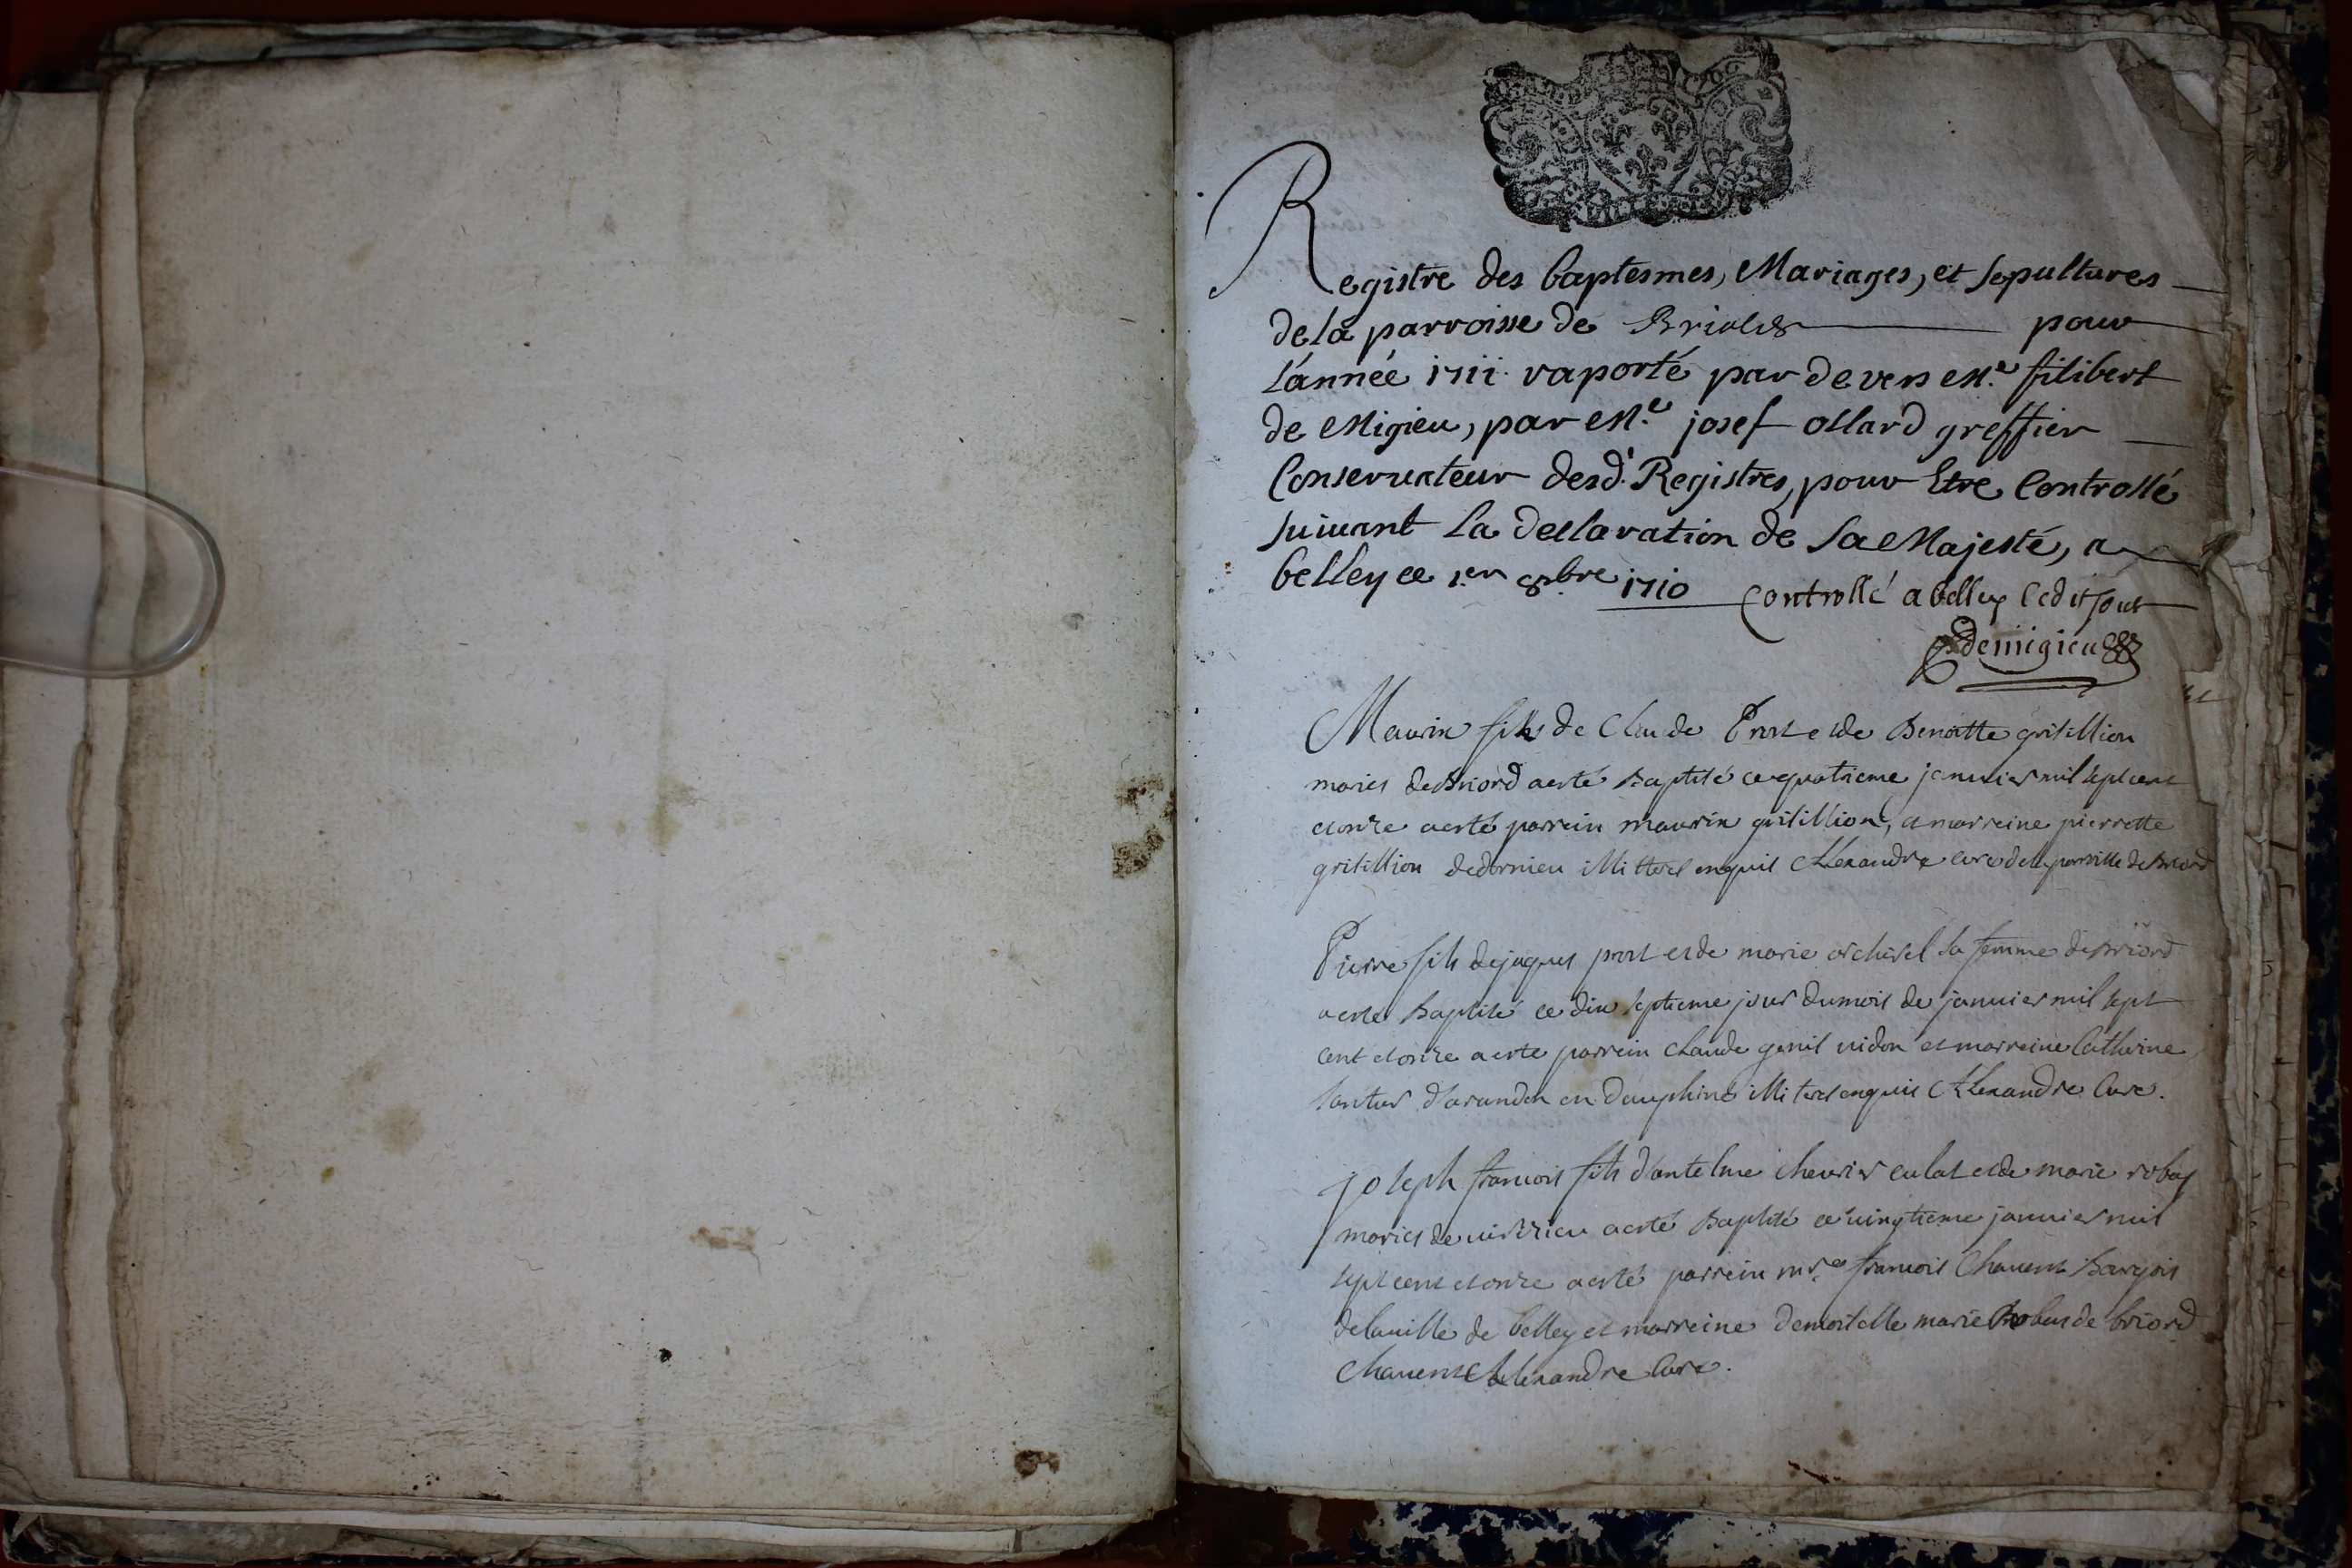 Registre des baptesmes, Mariages, et sepultures
de la parroisse de pour
l'année 1711 raporté par devers M.e filibert
de Migieu, par M.e josef ollard greffier
Conservateur desd. Registres, pour Etre Controllé
suivant la declaration de Sa Majesté, a
belley ce 1.er 8.bre 1710 Controllé a belley ledit jour
demigieu
Maurin fils de Claude Prost et de Benoitte gritillion
maries de Briord a esté Baptisé ce quatrieme januier mil sept cent
et onze a esté parrein maurin gritillion, et marreine pierrette
gritillion illiteres enquis Alexandre curé de la parroisse de Briord
Pierre fils de jaques prost et de marie sa femme de Briord
a esté Baptisé ce dix septieme jour du mois de januier mil sept
cent et onze a esté parrein claude genil uidon et marreine Catherine
d'arandon en Dauphiné illiteres enquis Alexandre Curé.
joseph francois fils d'antelme cheurier culat et de marie robas
maries de uirieu a esté Baptisé ce uingtieme januier mil
sept cent et onze a esté parrein francois Chauent Bourjois
de la uille de belley et marreine Demoiselle marie Robas de briord
Chauent Alexandre Curé.